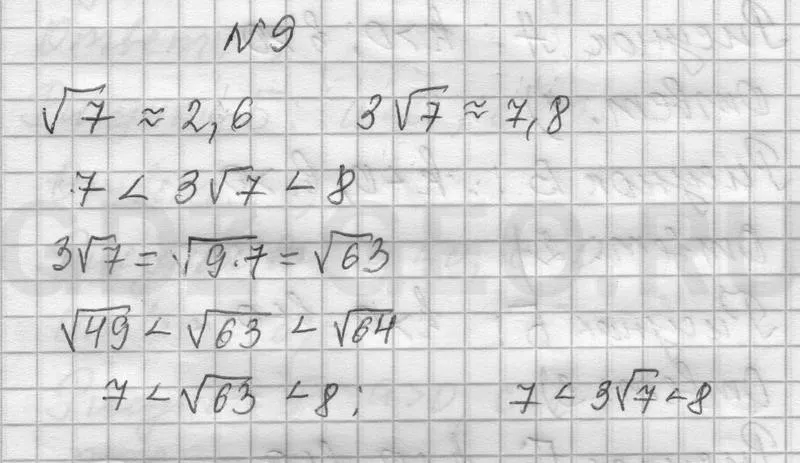 № 9
√7 ≈ 2,6 3√7 ≈ 7,8
7 < 3√7 < 8
3√7 = √9·7 = √63
√49 < √63 < √64
7 < √63 < 8; 7 < 3√7 < 8